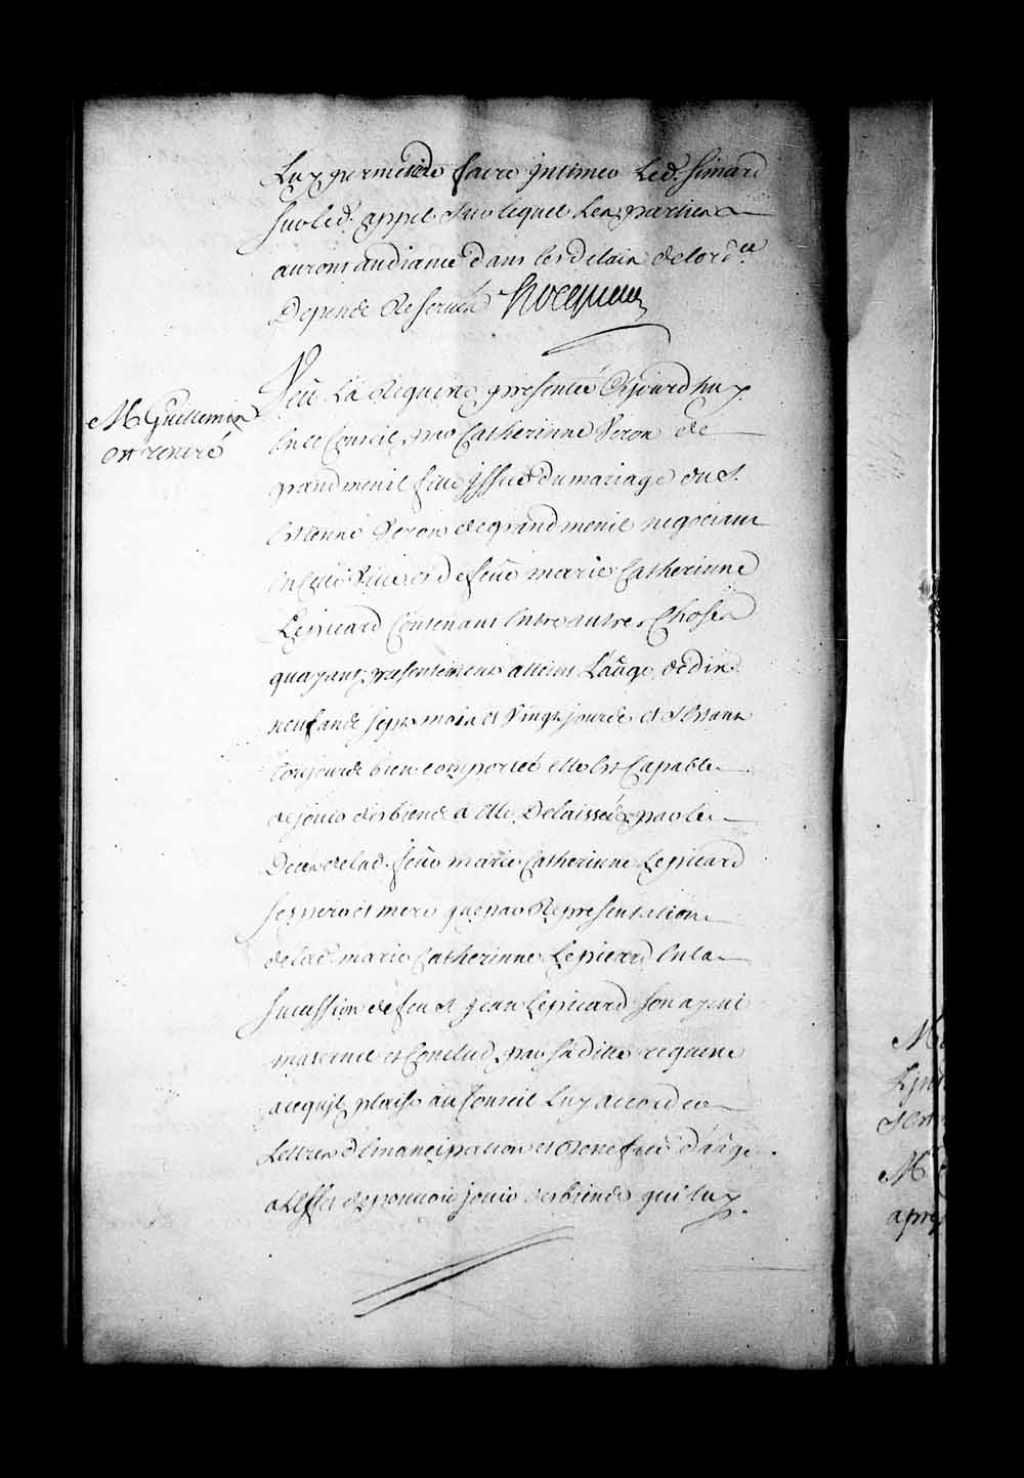 Luy permis de faire intimer Led. Simard
sur led. appel Sur lequel Les parties
auront audiance dans les delais de lord.ce
Depens Reservés Hocquart
M. Guillemin
est rentré
Veu La Requeste presentée Cejourdhuy
En ce Conseil par Catherinne Veron de
grandmenil fille issue du mariage du S.
Estienne Veron de grandmenil negociant
En cette Ville et de feüe marie Catherinne
Lepicard Contenant Entre autres Choses
quayant presentement atteint Laâge de dix
neuf ans sept mois et Vingt jours et sestant
toujours bien comportée elle Est Capable
de jouir des biens a Elle Delaissés par le
Deces de lad. feüe marie Catherinne Lepicard
sa mere que par Representation
de lad. marie Catherinne Lepicard En la
sucession de feu S. jean Lepicard son ayeul
maternel et Conclud par sa ditte requeste
a ce quil plaise au Conseil Luy accorder
Lettres d'Emancipation et Benefice d'aâge
a Leffet de pouvoir jouir des biens qui luy
M
M
apre